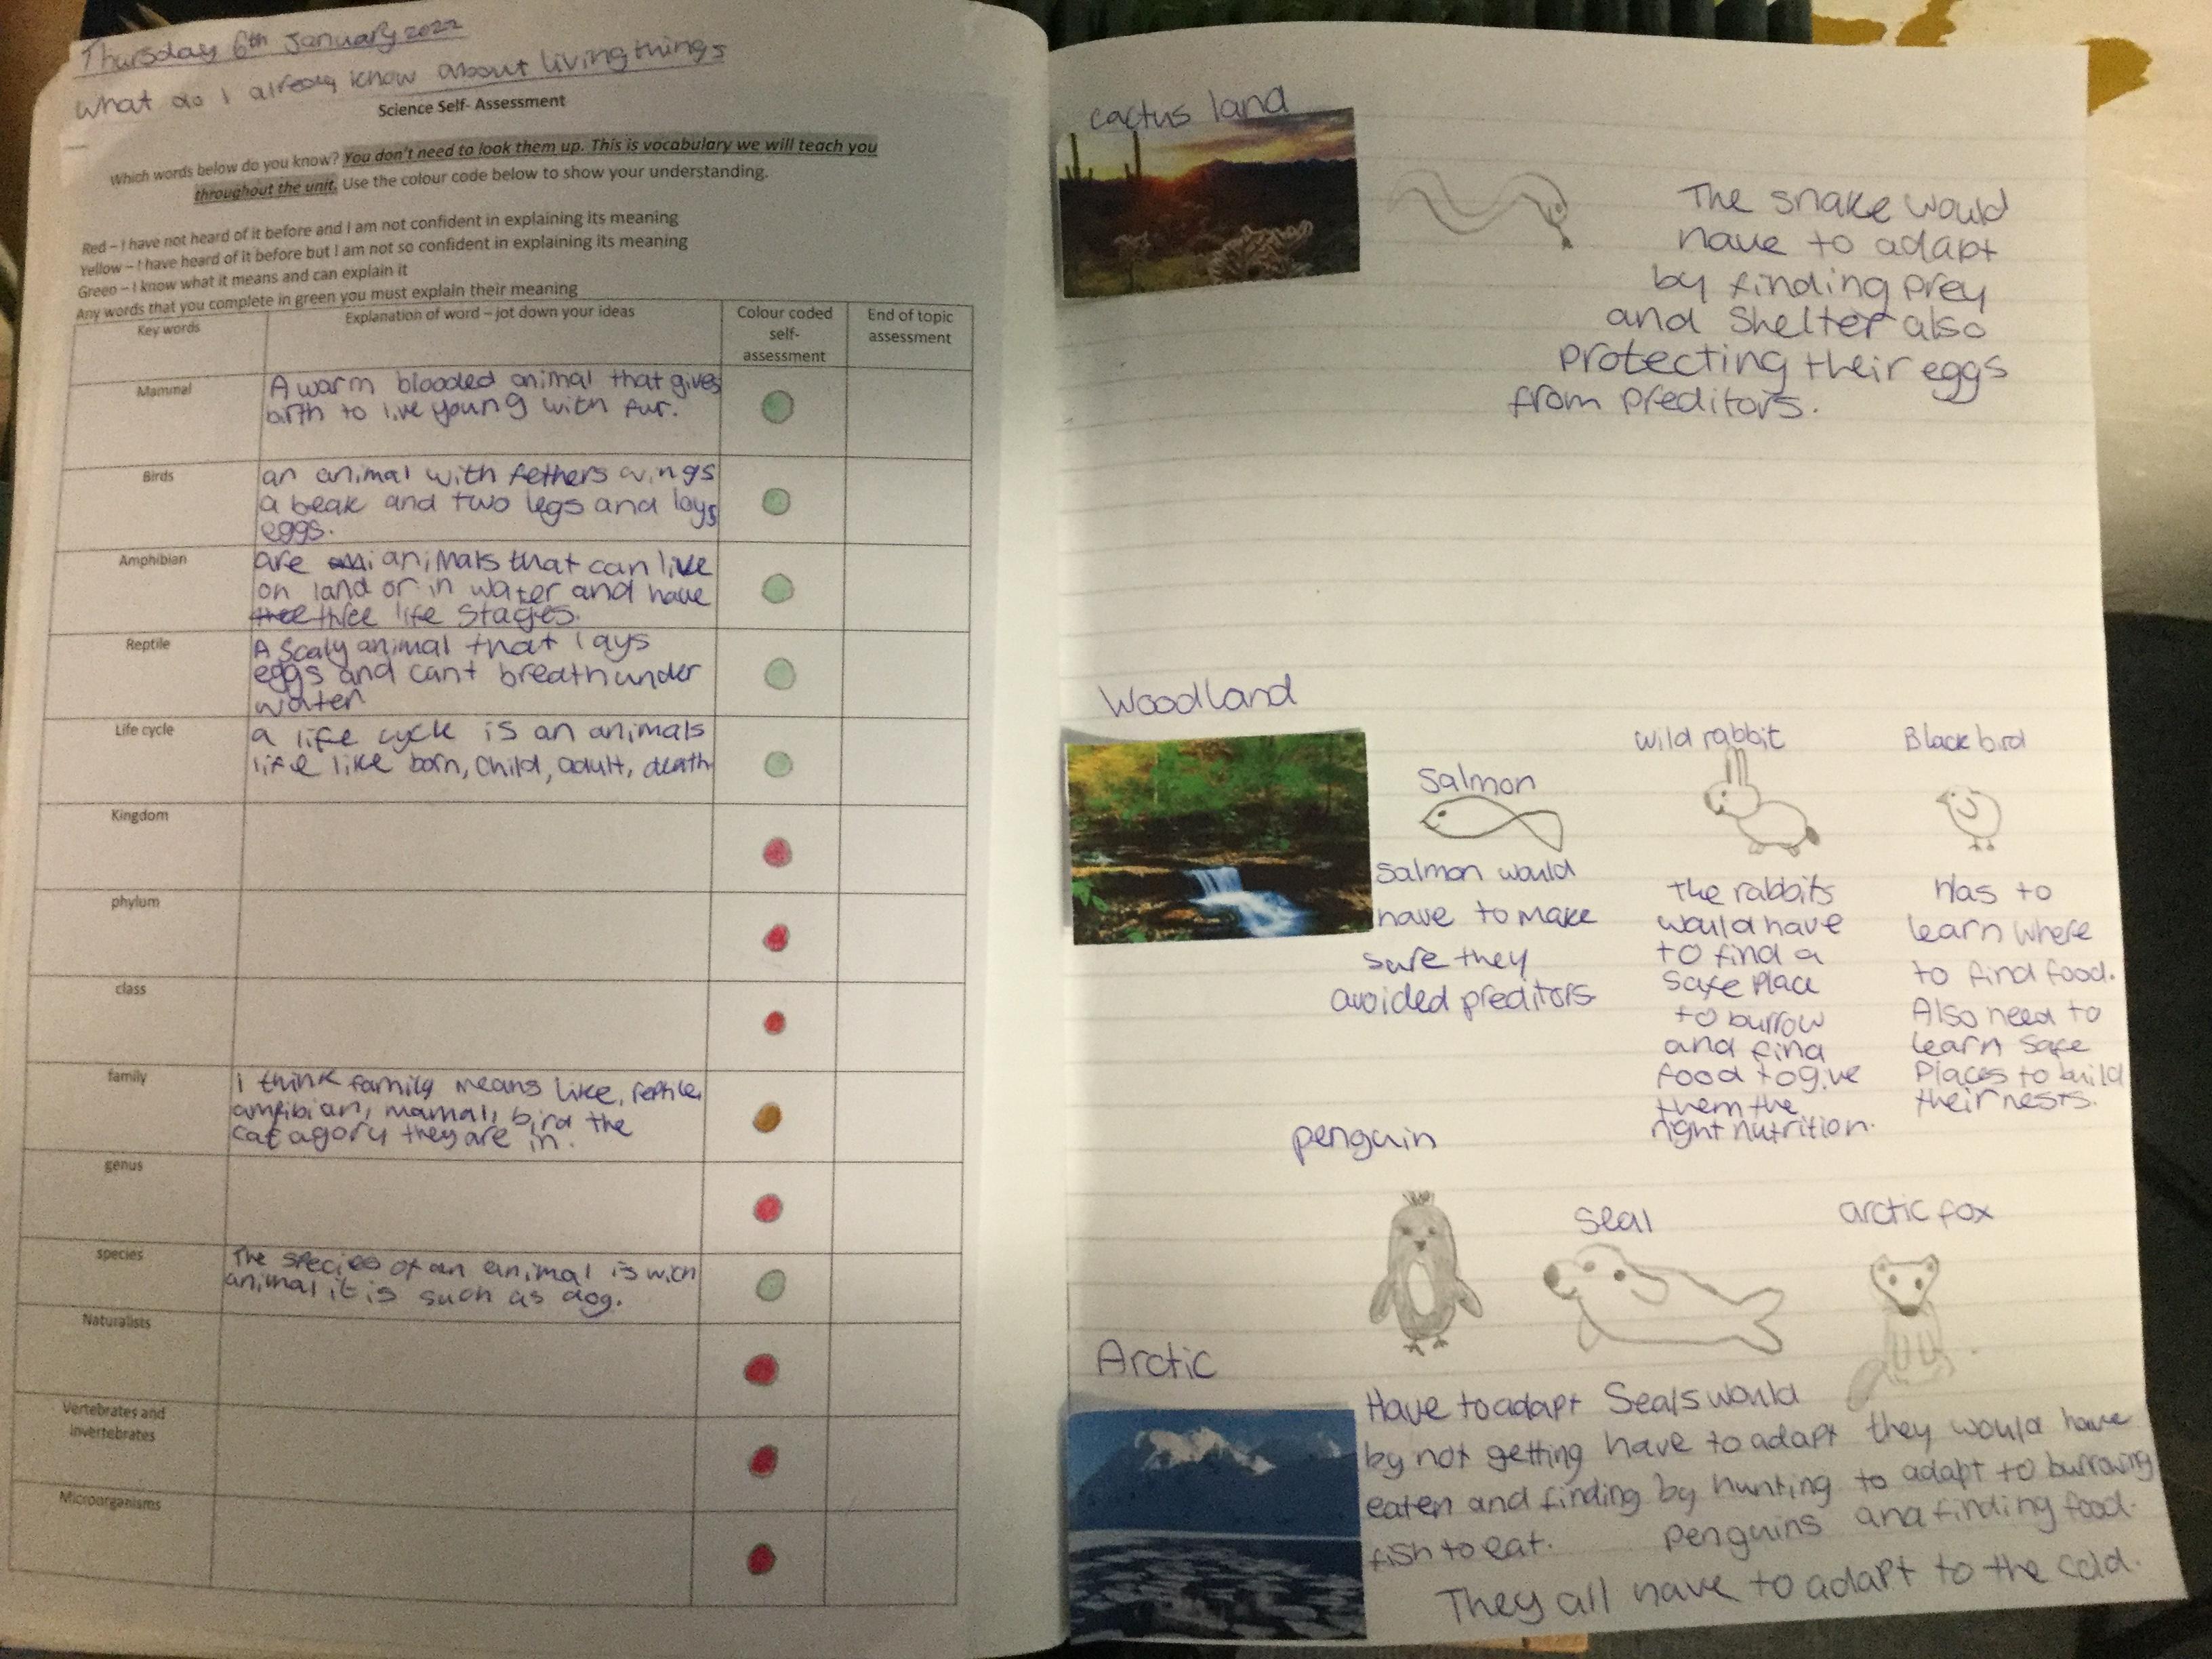 Thursday 6th January 2022
What do I already know about living things
Science Self- Assessment
Which words below do you know? You don't need to look them up. This is vocabulary we will teach you
throughout the unit. Use the colour code below to show your understanding.
Red – I have not heard of it before and I am not confident in explaining its meaning
Yellow – I have heard of it before but I am not so confident in explaining its meaning
Green – I know what it means and can explain it
Any words that you complete in green you must explain their meaning
Key words
Explanation of word – jot down your ideas
Colour coded
self-
assessment
End of topic
assessment
Mammal
A warm blooded animal that gives
birth to live young with fur.
Birds
an animal with fethers wings
a beak and two legs and lays
eggs.
Amphibian
are animals that can live
on land or in water and have
three life stages.
Reptile
A Scaly animal that lays
eggs and cant breath under
water
Life cycle
a life cycle is an animals
life like born, child, adult, death
Kingdom
phylum
class
family
i think family means like, reptile,
amfibian, mamal, bird the
catagory they are in.
genus
species
The species of an animal is wich
animal it is such as dog.
Naturalists
Vertebrates and
invertebrates
Microorganisms
cactus land
The snake would
have to adapt
by finding prey
and Shelter also
protecting their eggs
from preditors.
Woodland
Salmon
Salmon would
have to make
sure they
avoided preditors
wild rabbit
the rabbits
would have
to find a
safe place
to burrow
and find
food to give
them the
right nutrition.
Black bird
Has to
learn where
to find food.
Also need to
learn safe
places to build
their nests.
penguin
seal
arctic fox
Arctic
Have to adapt
by not getting
eaten and finding
fish to eat.
Seals would
have to adapt
by hunting
penguins
they would have
to adapt to burrowing
and finding food.
They all have to adapt to the cold.